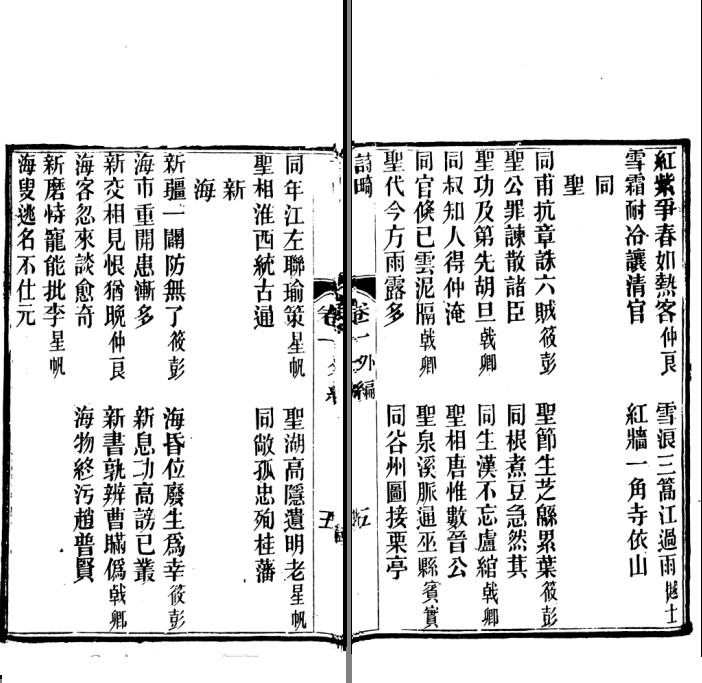 紅紫爭春如熱客仲良
雪浪三篙江過雨撼士
雪霜耐冷讓清官
紅牆一角寺依山
同
聖
同甫抗章誅六賊筱彭
聖節生芝緜累葉筱彭
聖公罪諫散諸臣
同根煮豆急然萁
聖功及第先胡旦戟卿
同生漢不忘盧綰戟卿
同叔知人得仲淹
聖相唐惟數晉公
同官倏已雲泥隔戟卿
聖泉溪脈通巫縣賓實
聖代今方雨露多
同谷州圖接栗亭
詩畸
卷一外編
五
卷一
五
同年江左聯瑜策星帆
聖湖高隱遺明老星帆
聖相淮西統古通
同敞孤忠殉桂藩
新
海
新疆一闢防無了筱彭
海昏位廢生爲幸筱彭
海市重開患漸多
新息功高謗已叢
新交相見恨猶晚仲良
新書孰辨曹瞞僞戟卿
海客忽來談愈奇
海物終污趙普賢
新磨恃寵能批李星帆
海叟逃名不仕元